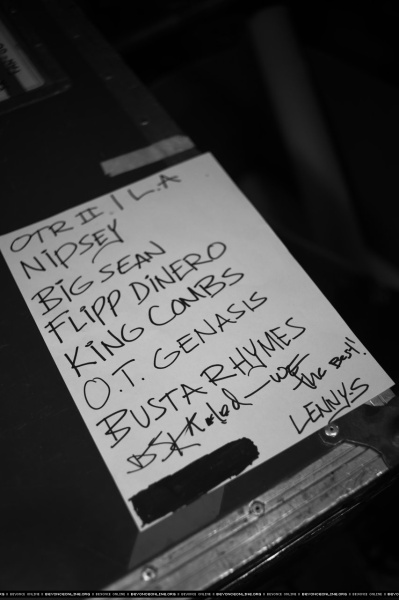 OTR II / L.A
NIPSEY
BIG SEAN
FLIPP DINERO
KING COMBS
O.T. GENASIS
BUSTA RHYMES
DJ Khaled — WE
The Best!
LENNY.S
BEYONCEONLINE.ORG